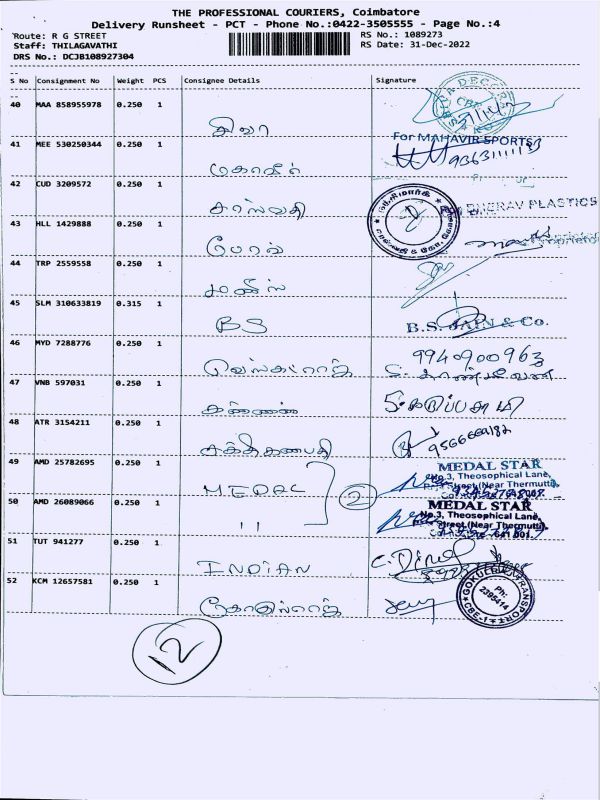 THE PROFESSIONAL COURIERS, Coimbatore
Delivery Runsheet - PCT - Phone No.:0422-3505555 - Page No.:4
Route: R G STREET
RS No.: 1089273
Staff: THILAGAVATHI
RS Date: 31-Dec-2022
DRS No.: DCJB108927304
S No Consignment No Weight PCS Consignee Details Signature
40 MAA 858955978 0.250 1
சிவா
41 MEE 530250344 0.250 1
For MAHAVIR SPORTS
மகாவீர்
42 CUD 3209572 0.250 1
சரஸ்வதி
PLASTICS
43 HLL 1429888 0.250 1
44 TRP 2559558 0.250 1
45 SLM 310633819 0.315 1
BS
B.S. JAIN & Co.
46 MYD 7288776 0.250 1
9940900963
வெங்கட்ராஜ்
47 VNB 597031 0.250 1
கண்ணன்
48 ATR 3154211 0.250 1
9566669182
சக்திகணபதி
49 AMD 25782695 0.250 1
MEDAL STAR
No.3, Theosophical Lane,
Street (Near Thermutti),
MEDAL
2
50 AMD 26089066 0.250 1
MEDAL STAR
No.3, Theosophical Lane,
Street (Near Thermutti),
641 001.
"
51 TUT 941277 0.250 1
INDIAN
52 KCM 12657581 0.250 1
GOKULRAJ TRANSPORT
Ph:
2395414
CBE-1
கோகுல்ராஜ்
12